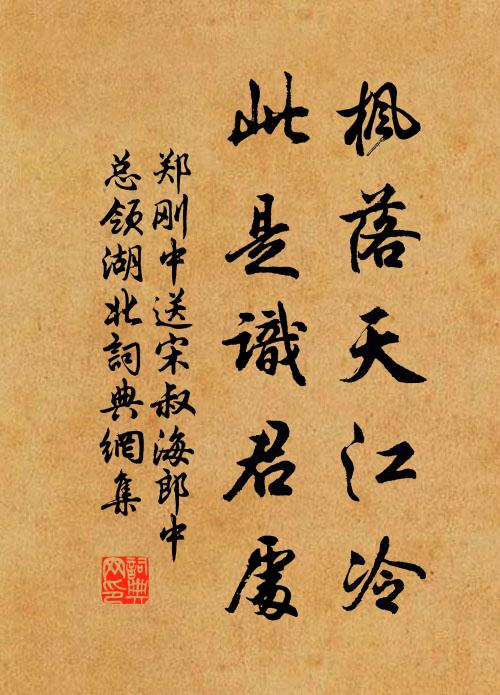 枫落天江冷
此是識君處
郑刚中送宋叔海郎中
总领湖北詞典網集
詞典
网印